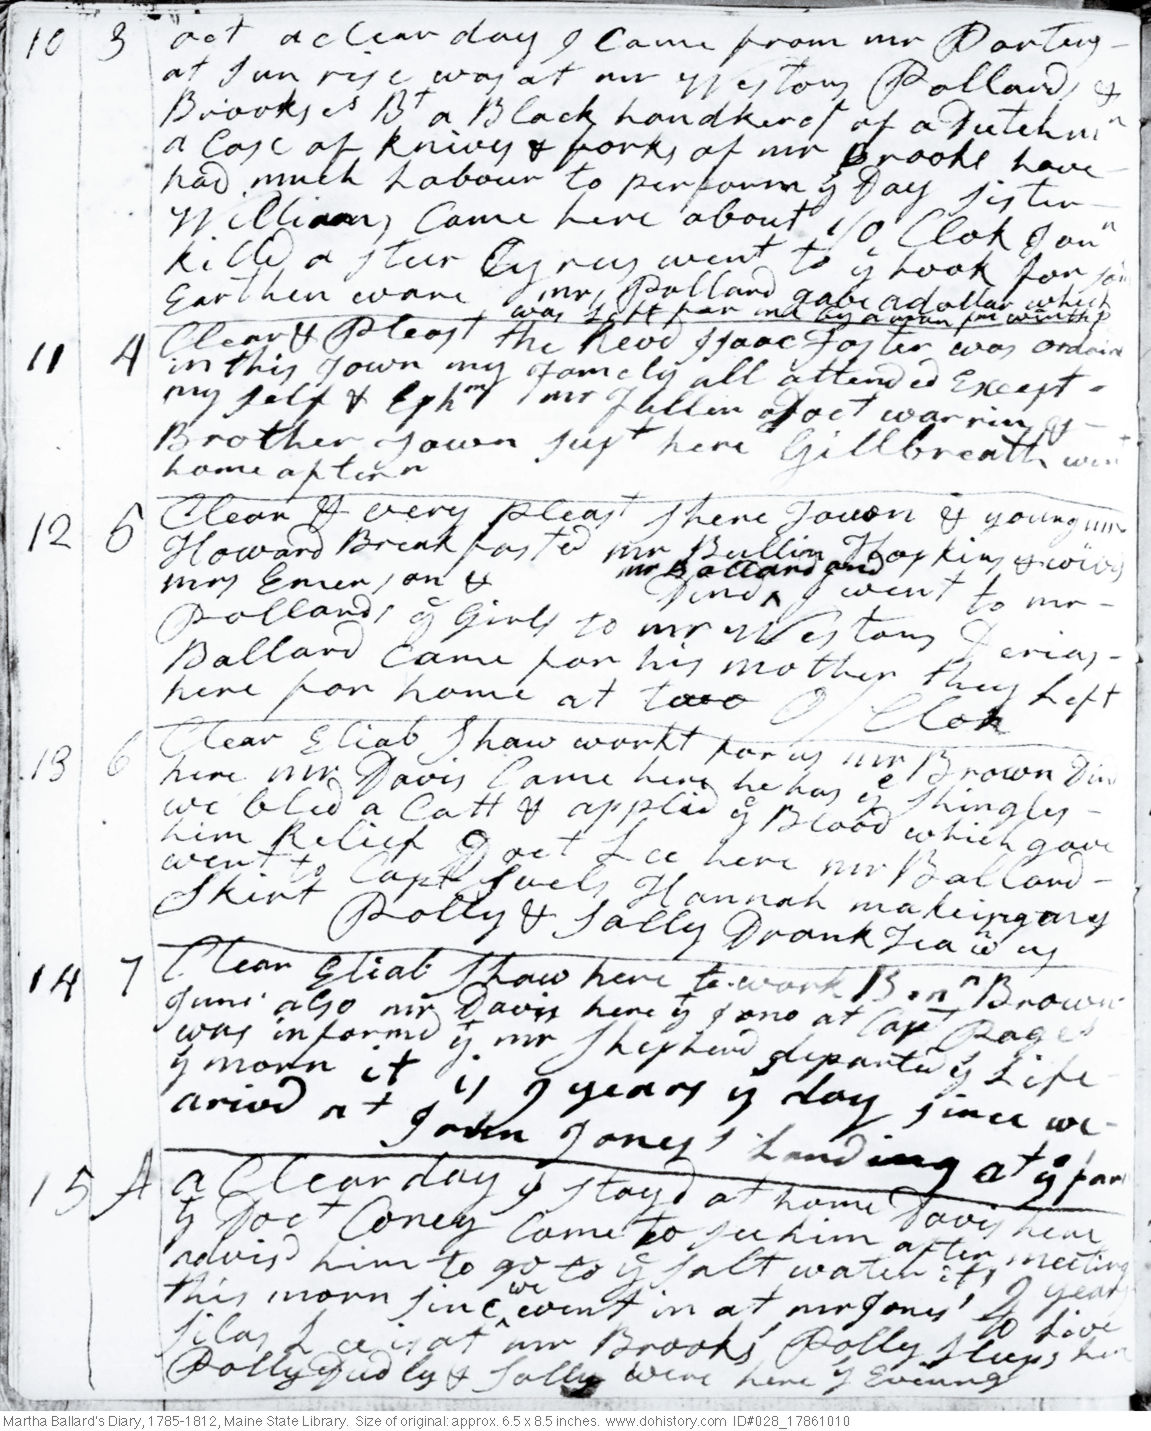 10 3 oct a clear day I Came from mr Porters
at sun rise was at mr Westons Pollards &
Brookses Bt a Black handkercf of a Dutchmn
a Case of knives & forks of mr Brooks have
had much Labour to perform ÿ Day sister
Williams Came here about 10 Clok Jonn
killd a steer Cyrus went to ÿ hook for
Earthen ware mrs Pollard gave a dollar which
was Left for me by a man for
11 4 Clear & Pleast the Revd Isaac Foster was ordaind
in this Town my Famely all attended Except
my self & Ephm mr Fullin Doct warrin &
Brother Town supt here Gillbreath went
home aftern
12 5 Clear & very pleast here Town & young mr
Howard Breakfasted mr Bullin Hopkins &
mrs Emerson & mr Ballard and
Dined I went to mr
Pollards ÿ Girls to mr Westons
Ballard Came for his mother they Left
here for home at two O Clok
13 6 Clear Eliab Shaw workt for us mr Brown Dind
here mr Davis Came here he has ÿ Shingles
we bled a Catt & applied ÿ Blood which gave
him Relief Doct Lee here mr Ballard
went to Capt Sewels Hannah makeing
Skirt Polly & Sally Drank Tea w us
14 7 Clear Eliab Shaw here to work Benn Brown
Junr also mr Davis here ÿ Jono at Capt Pages
was informd ÿ mr Shepherd departed ÿ Life
ÿ morn it is 9 years ÿ day since we
arivd at John Jones' Landing at ÿ
15 A a Clear day I stayd at home Davis here
ÿ Doct Coney Came to see him after meeting
advisd him to go to ÿ salt water it s 9 years
this morn since we went in at mr Jones' to Live
Silas Lee is at mr Brooks' Polly sleeps here
Polly Sally were here ÿ Evening
Martha Ballard's Diary, 1785-1812, Maine State Library. Size of original: approx. 6.5 x 8.5 inches. www.dohistory.com ID#028_17861010